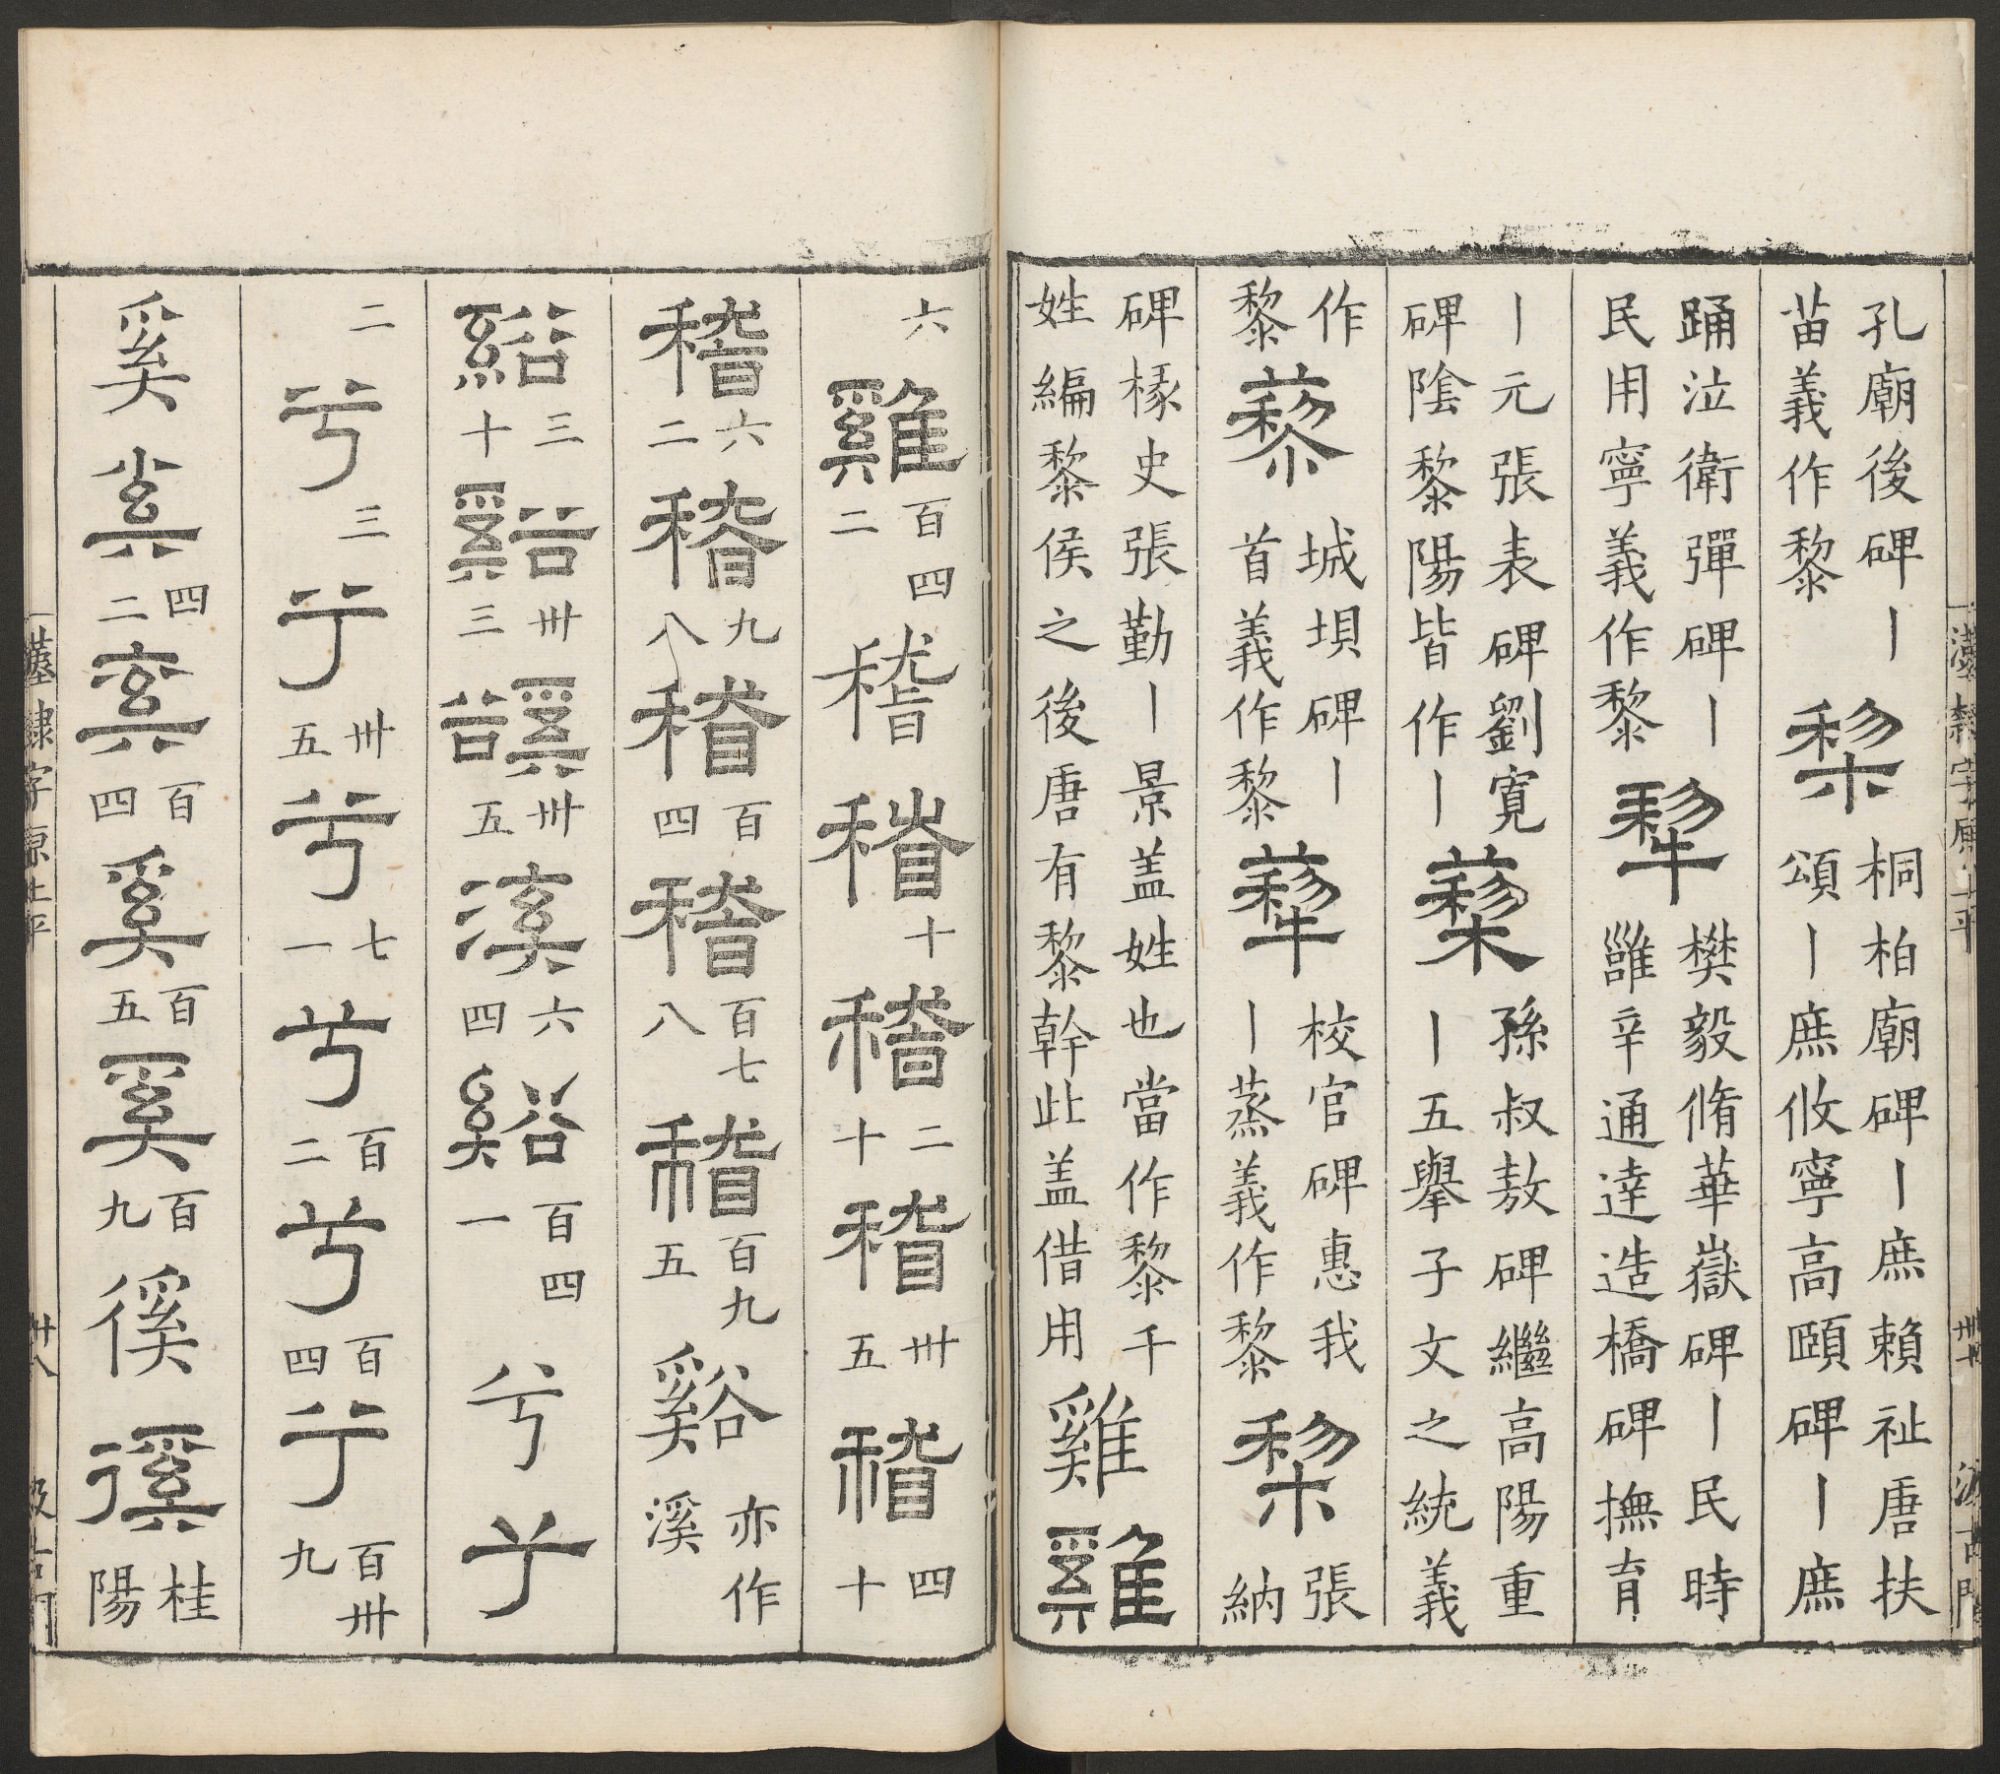 孔廟後碑丨
苗義作黎
棃
桐柏廟碑丨庶賴祉唐扶
頌丨庶攸寧高頤碑丨庶
踊泣衛彈碑丨
民用寧義作黎
犂
樊毅脩華嶽碑丨民時
雝辛通達造橋碑撫育
丨元張表碑劉寬
碑陰黎陽皆作丨
藜
孫叔敖碑繼高陽重
丨五舉子文之統義
作
黎
藜
城垻碑丨
首義作黎
校官碑惠我
丨蒸義作黎
棃
張
納
碑椽史張勤丨景盖姓也當作黎千
姓編黎侯之後唐有黎幹此盖借用
雞
雞
六
雞
百四
二
稽
稽
十
稽
二
十
稽
卅
五
稽
四
十
稽
六
二
稽
九
八
稽
百
四
稽
百七
八
稽
百九
五
谿
亦作
溪
三
十
卅
三
卅
五
溪
六
四
谿
百四
一
兮
兮
二
兮
三
兮
卅
五
兮
七
一
兮
百
二
兮
百
四
兮
百卅
九
奚
奚
四
二
奚
百
四
奚
百
五
奚
百
九
徯
徯
桂
陽
漢隸字原上平
卅八
汲古閣